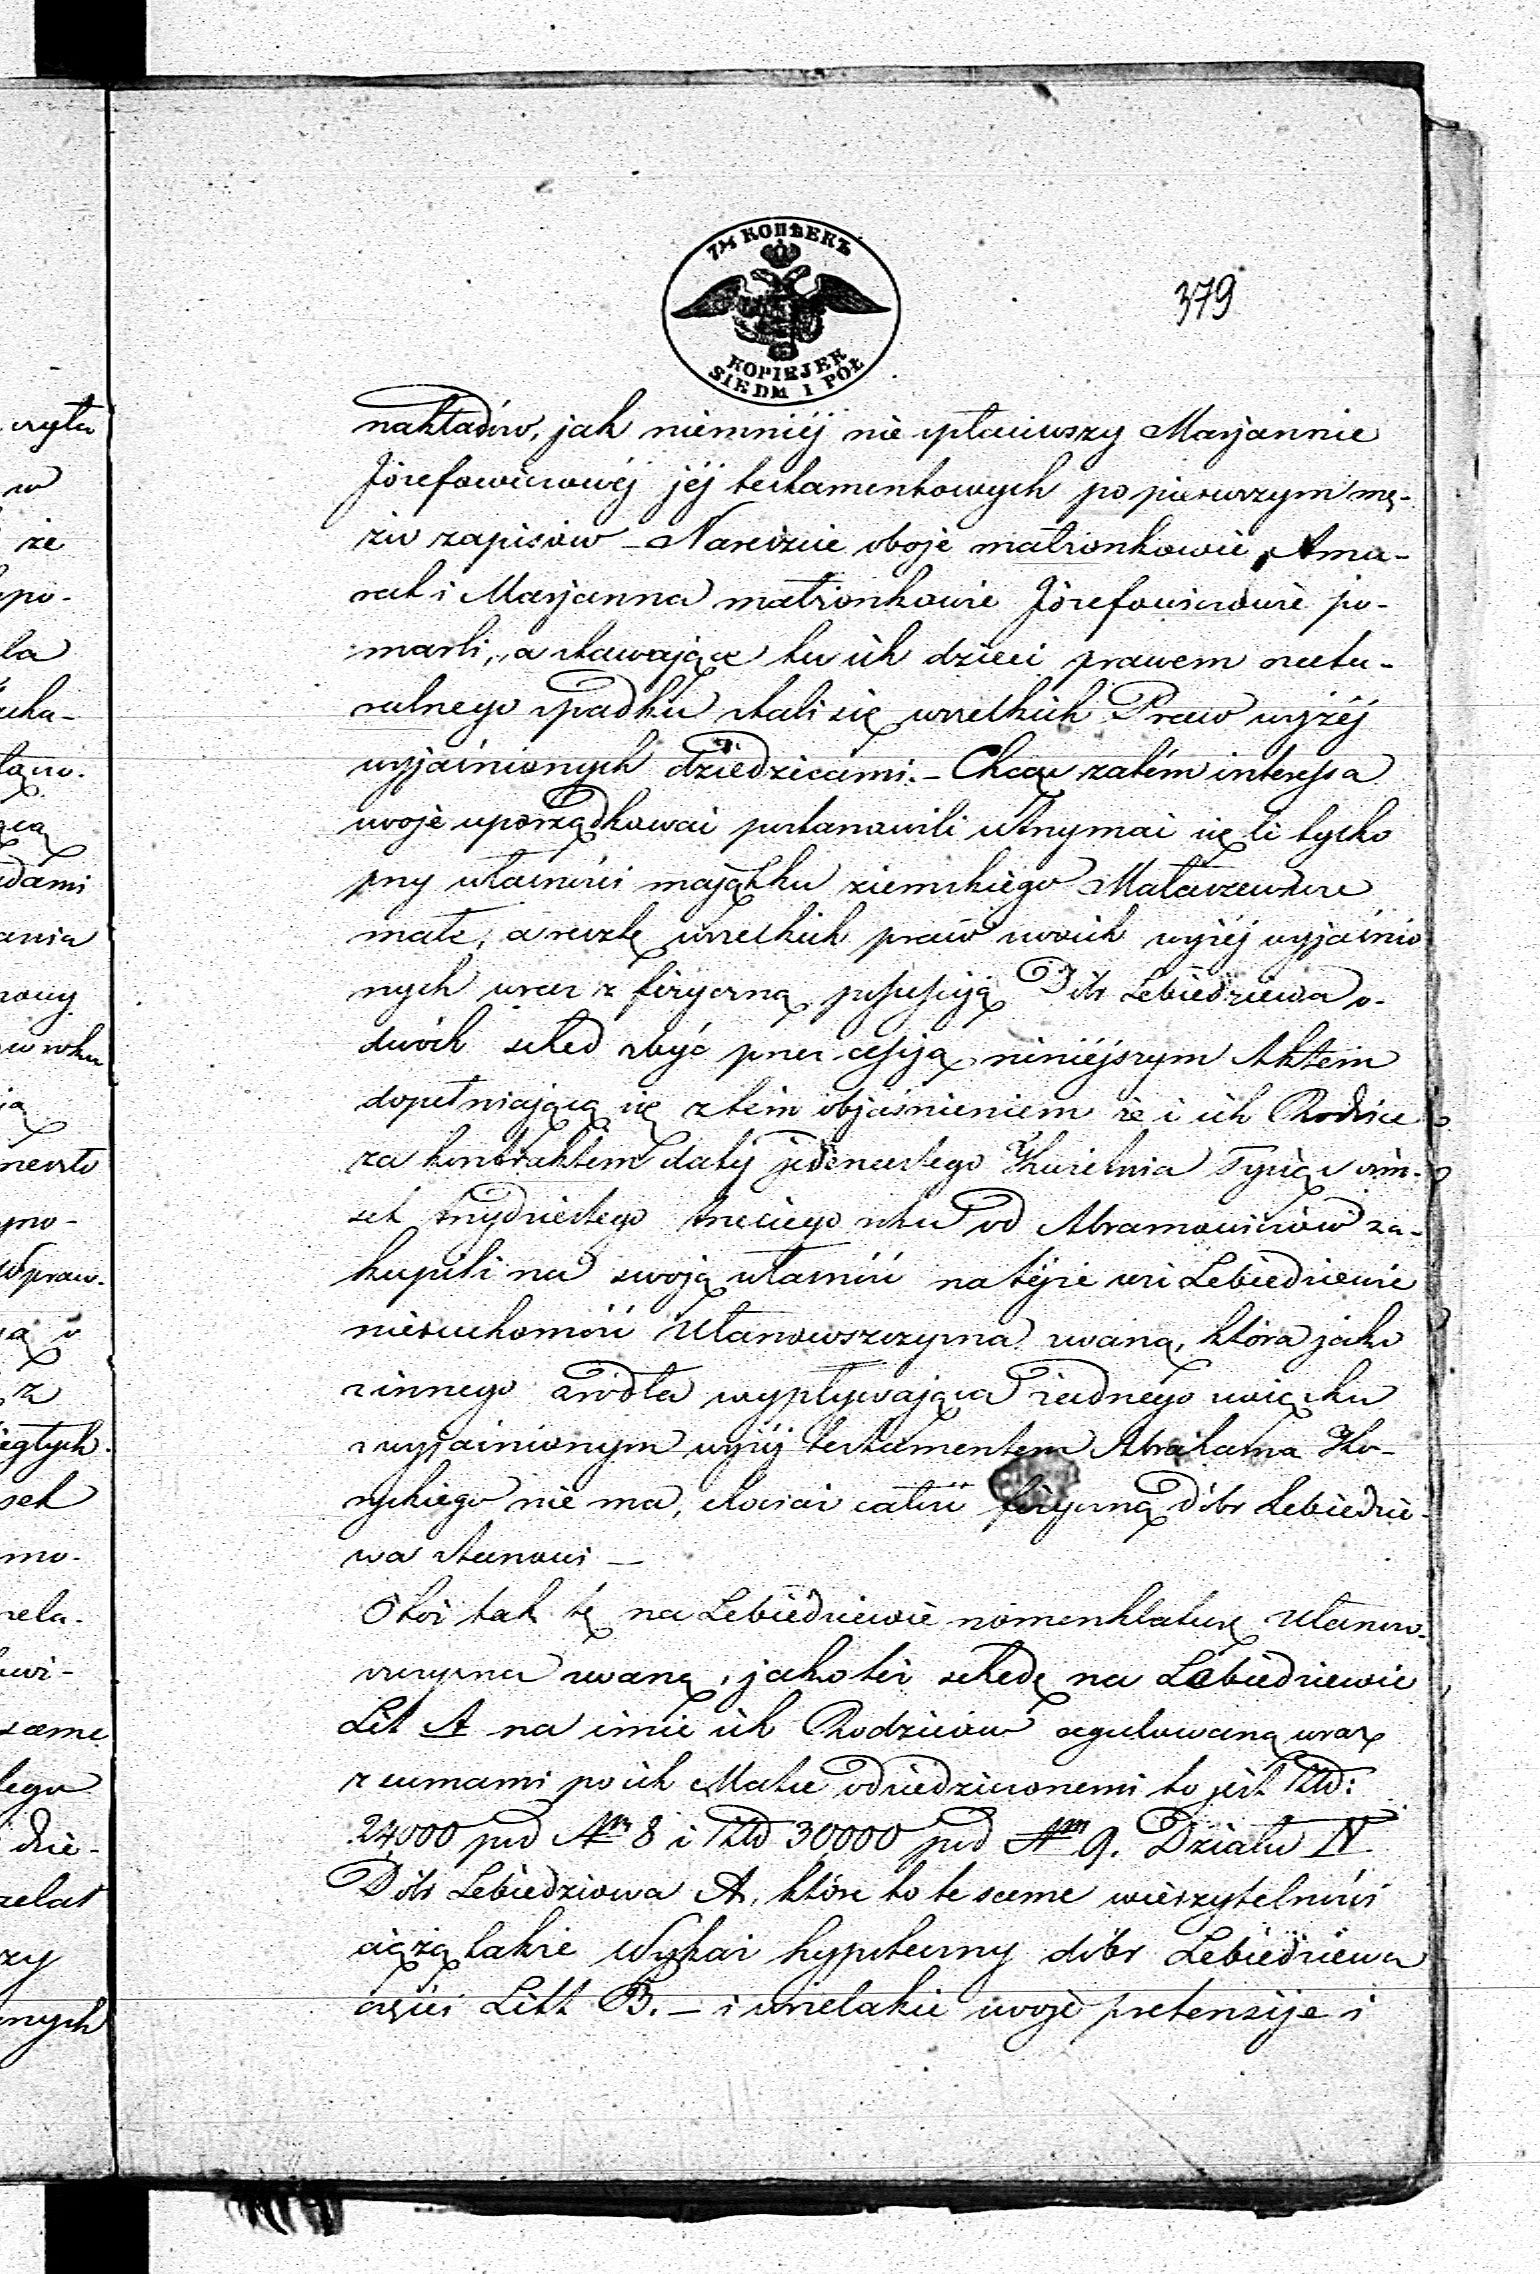 7½ КОПѢЕКЪ
KOPIEJEK
SIEDM I PÓŁ
379
nakładów, jak niemniéj nie spłaciwszy Marjannie
Józefowiczowéj jéj testamentowych po pierwszym mę-
żu zapisów – Nareszcie oboje małżonkowie, Ama-
rat i Marjanna małżonkowie Józefowiczowie po-
marli, a stawające tu ich dzieci prawem natu-
ralnego spadku stali się wszelkich Praw wyżéj
wyjaśnionych dziedzicami. – Chcąc zatém interessa
swoje uporządkować postanowili utrzymać się li tylko
przy własności majątku ziemskiego Małaszewicze
małe, a resztę wszelkich praw swoich wyżéj wyjaśnio
nych wraz z fizyczną possessyją Dóbr Lebiedziewa o-
dwóch sched zbyć przez cessyją niniéjszym Aktem
dopełniającą się z tém objaśnieniem że i ich Rodzice
za kontraktem daty jedenastego Kwietnia Tysiąc ośm-
set trzydziestego trzeciego roku od Abramowiczów za-
kupili na swoją własność na téjże wsi Lebiedziewie
nieruchomość Ułanowszczyzna zwaną, która jako
z innego źródła wypływająca żadnego związku
z wyjaśnionym wyżéj testamentem Abrahama Ko-
ryckiego nie ma, chociaż całość fizyczną dóbr Lebiedzie-
wa stanowi –
Otóż tak tę na Lebiedziewie nomenklaturę Ułanow-
szczyzna zwaną, jako też schedę na Lebiedziewie
Lit A na imie ich Rodziców regulowaną wraz
z sumami po ich Matce odziedziczonemi to jest Złłd:
24,000 pod Nrm 8 i Złłd 30000 pod Nrm 9. Działu IV
Dóbr Lebiedziewa A, które to te same wierzytelności
ciążą także Wykaz hypoteczny dóbr Lebiedziewa
części Litt B. – i wszelakie swoje pretensije i